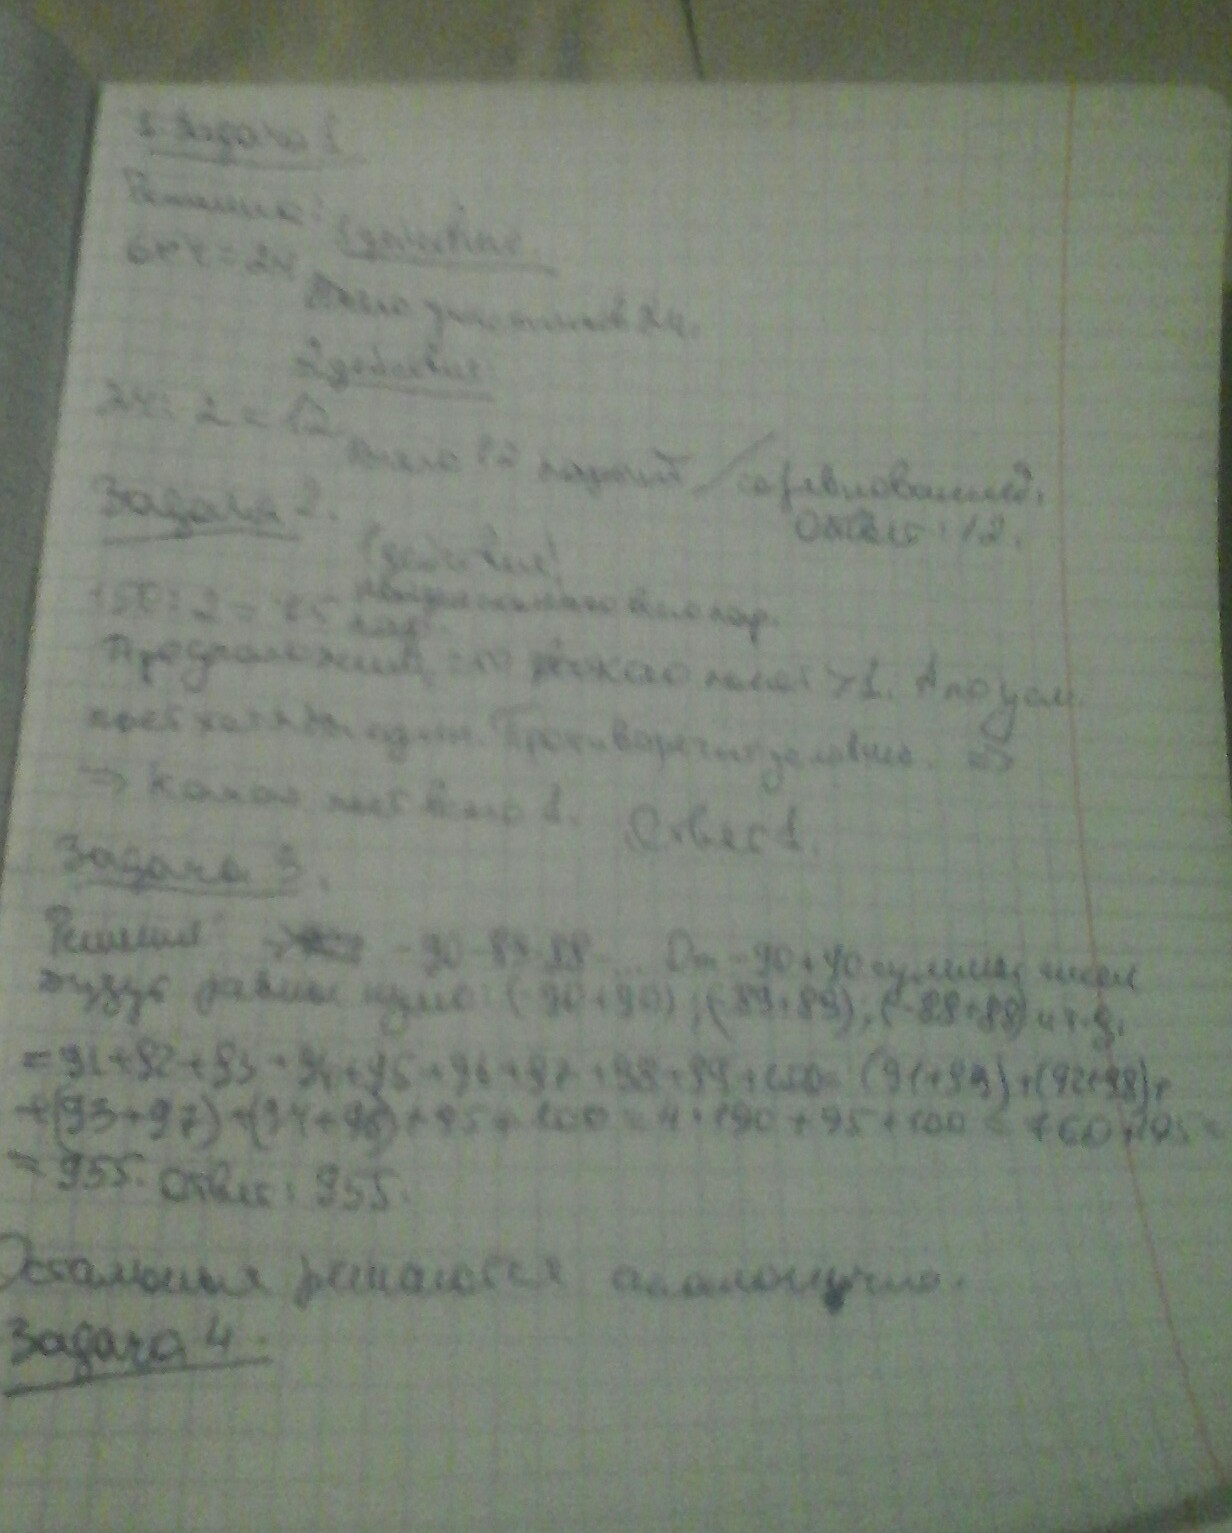 Задача 1
Решение:
1 действие.
6*4=24
Всего участников 24.
2 действие:
24:2=12
Всего 12 партий / соревнований.
Ответ: 12.
Задача 2.
1 действие
150:2=75 пар.
Предположим, что какао пьют >1. А по усл.
пьёт хотя бы один. Противоречит условию. =>
=> Какао пьёт всего 1. Ответ 1.
Задача 3.
Решения: -90-89-88-... От -90+90 суммы чисел
будут равны нулю: (-90+90); (-89+89); (-88+88) и т.д.
=91+92+93+94+95+96+97+98+99+100=(91+99)+(92+98)+
+(93+97)+(94+96)+95+100=4*190+95+100=760+195=
=955. Ответ: 955.
Остальные решаются аналогично.
Задача 4.